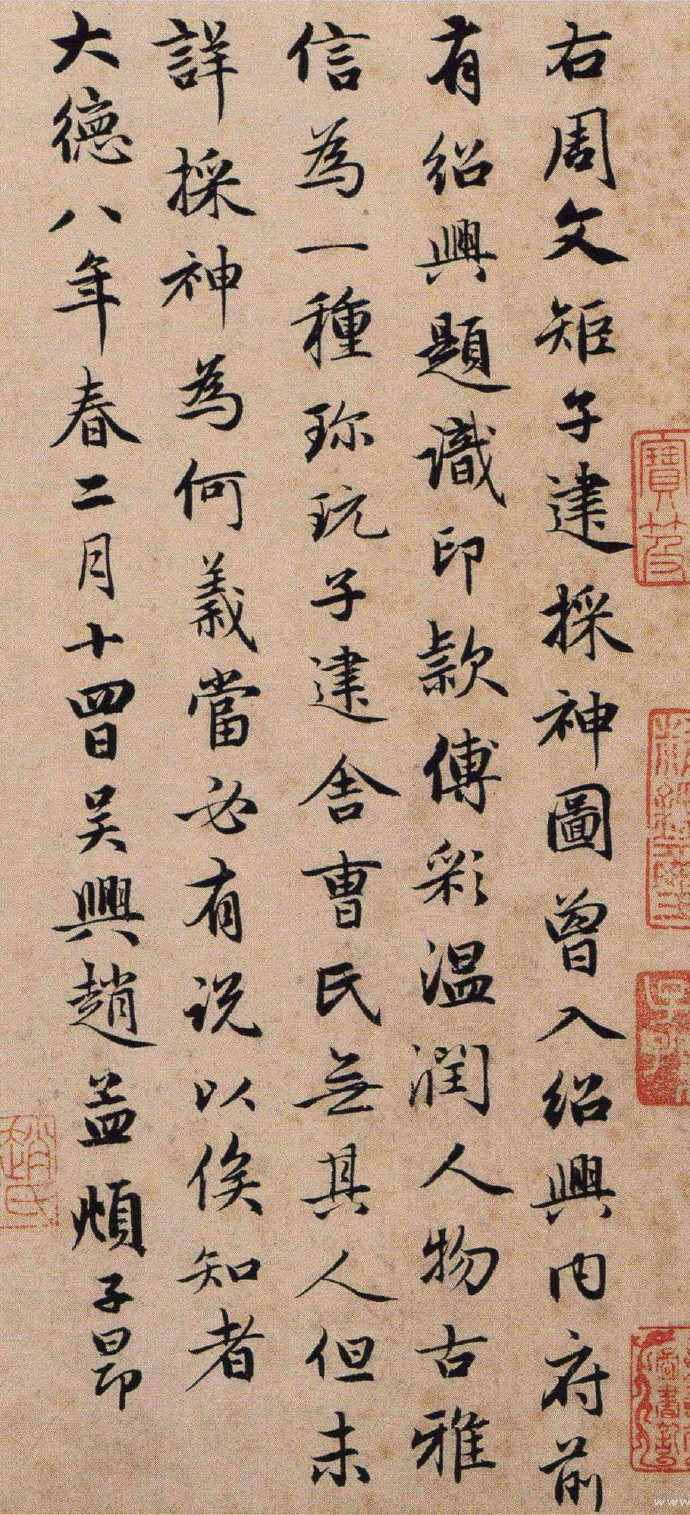 右周文矩子建採神圖曾入紹興内府前
有紹興題識印款傅彩温潤人物古雅
信為一種珎玩子建舍曹氏無其人但未
詳採神為何義當必有说以俟知者
大德八年春二月十四日吴興趙孟頫子昂
趙氏
www